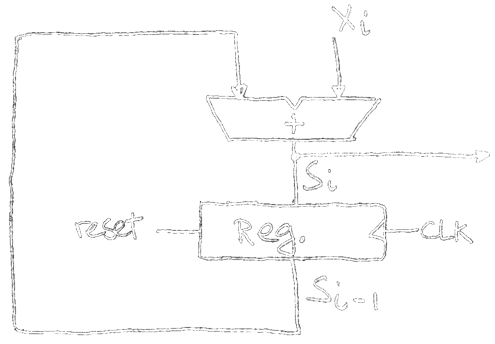 Xi
+
Si
reset Reg. CLK
Si-1